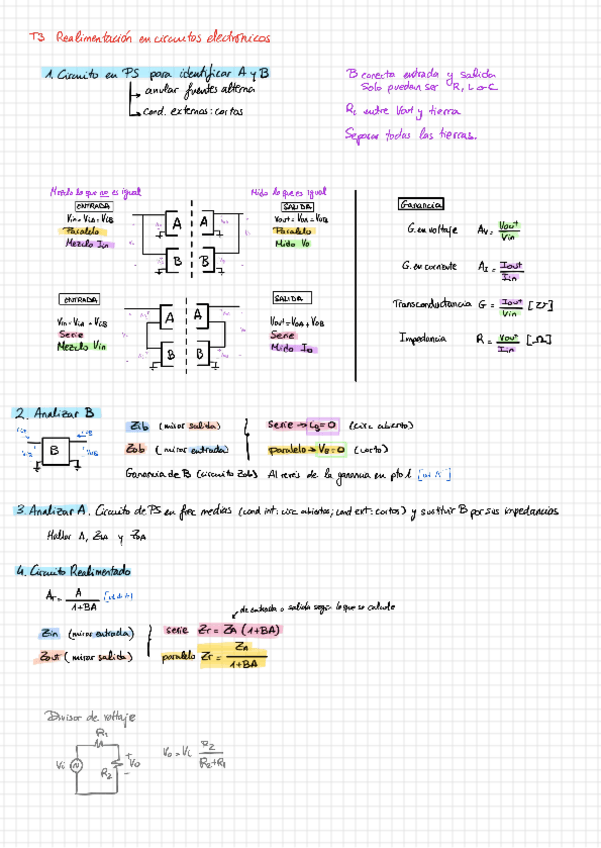 T3 Realimentación en circuitos electrónicos
1. Circuito en PS para identificar A y B
→ anular fuentes alterna
→ Cond. externas: cortos
B conecta entrada y salida
Solo puedan ser R, L o C
RL entre Vout y tierra
Separar todas las tierras.
Mezclo lo que no es igual
ENTRADA
Vin = ViA = ViB
Paralelo
Mezclo Iin
A
A
B
B
Mido lo que es igual
SALIDA
Vout = VoA = VoB
Paralelo
Mido Vo
ENTRADA
Serie
Mezclo Vin
A
A
B
B
SALIDA
Vout = VoA + VoB
Serie
Mido Io
Ganancia
G. en voltaje Av = Vout / Vin
G. en corriente AI = Iout / Iin
Transconductancia G = Iout / Vin [℧]
Impedancia R = Vout / Iin [Ω]
2. Analizar B
B
Zib (mirar salida)
Zob (mirar entrada)
serie → = 0 (circ. abierto)
paralelo → = 0 (corto)
Ganancia de B (circuito Zob) Al revés de la ganancia en pto 1
3. Analizar A. Circuito de PS en frec medias (cond int: circ. abiertos; cond ext: cortos) y sustituir B por sus impedancias
Hallar A, ZiA y ZoA
4. Circuito Realimentado
Ar = A / 1+BA
de entrada o salida según lo que se calcule
Zin (mirar entrada)
Zout (mirar salida)
serie Zr = ZA (1+BA)
paralelo Zr = ZA / 1+BA
Divisor de voltaje
R1
Vi
R2
+
Vo
-
Vo = Vi R2 / R2+R1